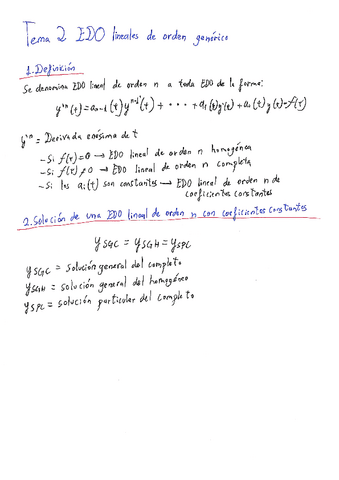 Tema 2 EDO lineales de orden genérico
1. Definición
Se denomina EDO lineal de orden n a toda EDO de la forma:
yⁿ(t)=aₙ₋₁(t)yⁿ⁻¹(t) + ... + a₁(t)y'(t) + a₁(t)y(t)=f(t)
yⁿ = Derivada enésima de t
- Si f(t)=0 → EDO lineal de orden n homogénea
- Si f(t)≠0 → EDO lineal de orden n completa
- Si las aᵢ(t) son constantes → EDO lineal de orden n de
coeficientes constantes
2. Solución de una EDO lineal de orden n con coeficientes constantes
y_SGC = y_SGH = y_SPC
y_SGC = solución general del completo
y_SGH = solución general del homogéneo
y_SPC = solución particular del completo